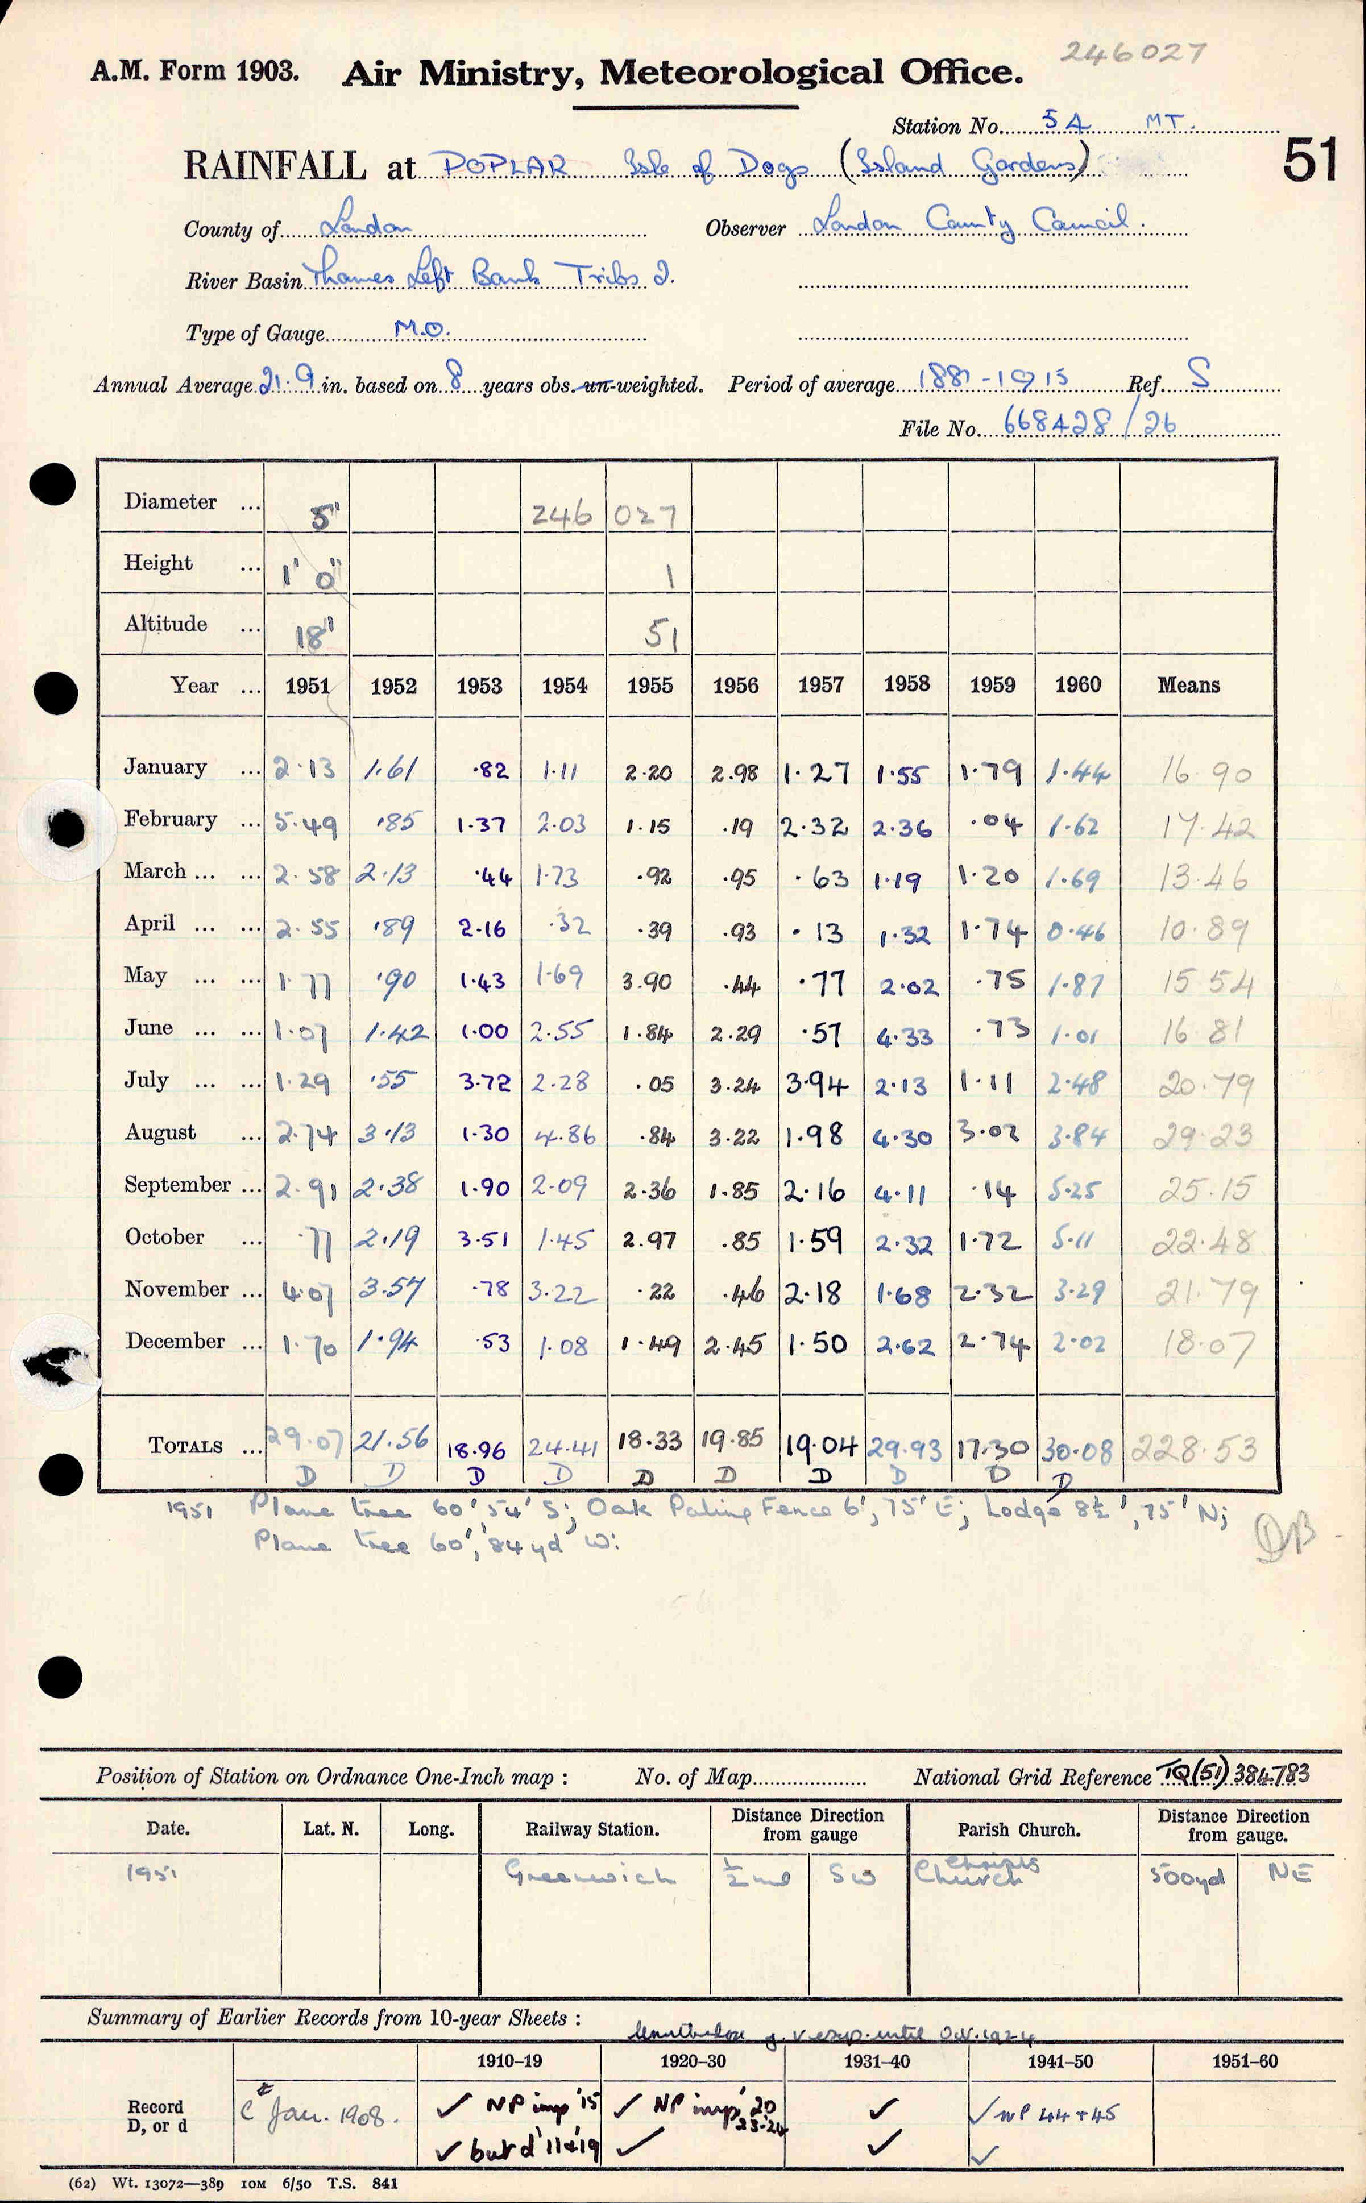 246027
A.M. Form 1903. Air Ministry, Meteorological Office.
Station No. 5A MT.
RAINFALL at POPLAR Isle of Dogs (Island Gardens)
51
County of London Observer London County Council.
River Basin Thames Left Bank Tribs 2.
Type of Gauge M.O.
Annual Average 21.9 in. based on 8 years obs. un-weighted. Period of average 1881-1915 Ref. S
File No. 668428/26
Diameter ... 5" 246 027
Height ... 1' 0" 1
Altitude ... 18' 51
Year ... 1951 1952 1953 1954 1955 1956 1957 1958 1959 1960 Means
January ... 2.13 1.61 .82 1.11 2.20 2.98 1.27 1.55 1.79 1.44 16.90
February ... 5.49 .85 1.37 2.03 1.15 .19 2.32 2.36 .04 1.62 17.42
March ... ... 2.58 2.13 .44 1.73 .92 .95 .63 1.19 1.20 1.69 13.46
April ... ... 2.55 .89 2.16 .32 .39 .93 .13 1.32 1.74 0.46 10.89
May ... ... 1.77 .90 1.43 1.69 3.90 .44 .77 2.02 .75 1.87 15 54
June ... ... 1.07 1.42 1.00 2.55 1.84 2.29 .57 4.33 .73 1.01 16 81
July ... ... 1.29 .55 3.72 2.28 .05 3.24 3.94 2.13 1.11 2.48 20.79
August ... 2.74 3.13 1.30 4.86 .84 3.22 1.98 4.30 3.02 3.84 29.23
September ... 2.91 2.38 1.90 2.09 2.36 1.85 2.16 4.11 .14 5.25 25.15
October ... .77 2.19 3.51 1.45 2.97 .85 1.59 2.32 1.72 5.11 22.48
November ... 4.07 3.57 .78 3.22 .22 .46 2.18 1.68 2.32 3.29 21.79
December ... 1.70 1.94 .53 1.08 1.49 2.45 1.50 2.62 2.74 2.02 18.07
TOTALS ... 29.07 21.56 18.96 24.41 18.33 19.85 19.04 29.93 17.30 30.08 228.53
D D D D D D D D D D
1951 Plane tree 60', 54' S; Oak Paling Fence 6', 75' E; Lodge 8½', 75' N;
Plane tree 60', 84yd W:
DB
Position of Station on Ordnance One-Inch map : No. of Map National Grid Reference TQ(51)384783
Date. Lat. N. Long. Railway Station. Distance Direction from gauge Parish Church. Distance Direction from gauge.
1951 Greenwich ½ml SW Christs Church 500yd NE
Summary of Earlier Records from 10-year Sheets :
until Oct. 1924
1910–19 1920–30 1931–40 1941–50 1951–60
Record D, or d
c Jan. 1908. ✓ NP imp '15 ✓ NP imp '20 23-24 ✓ ✓ NP 44+45
✓ but d '11+'19 ✓ ✓ ✓
(62) Wt. 13072—389 10M 6/50 T.S. 841